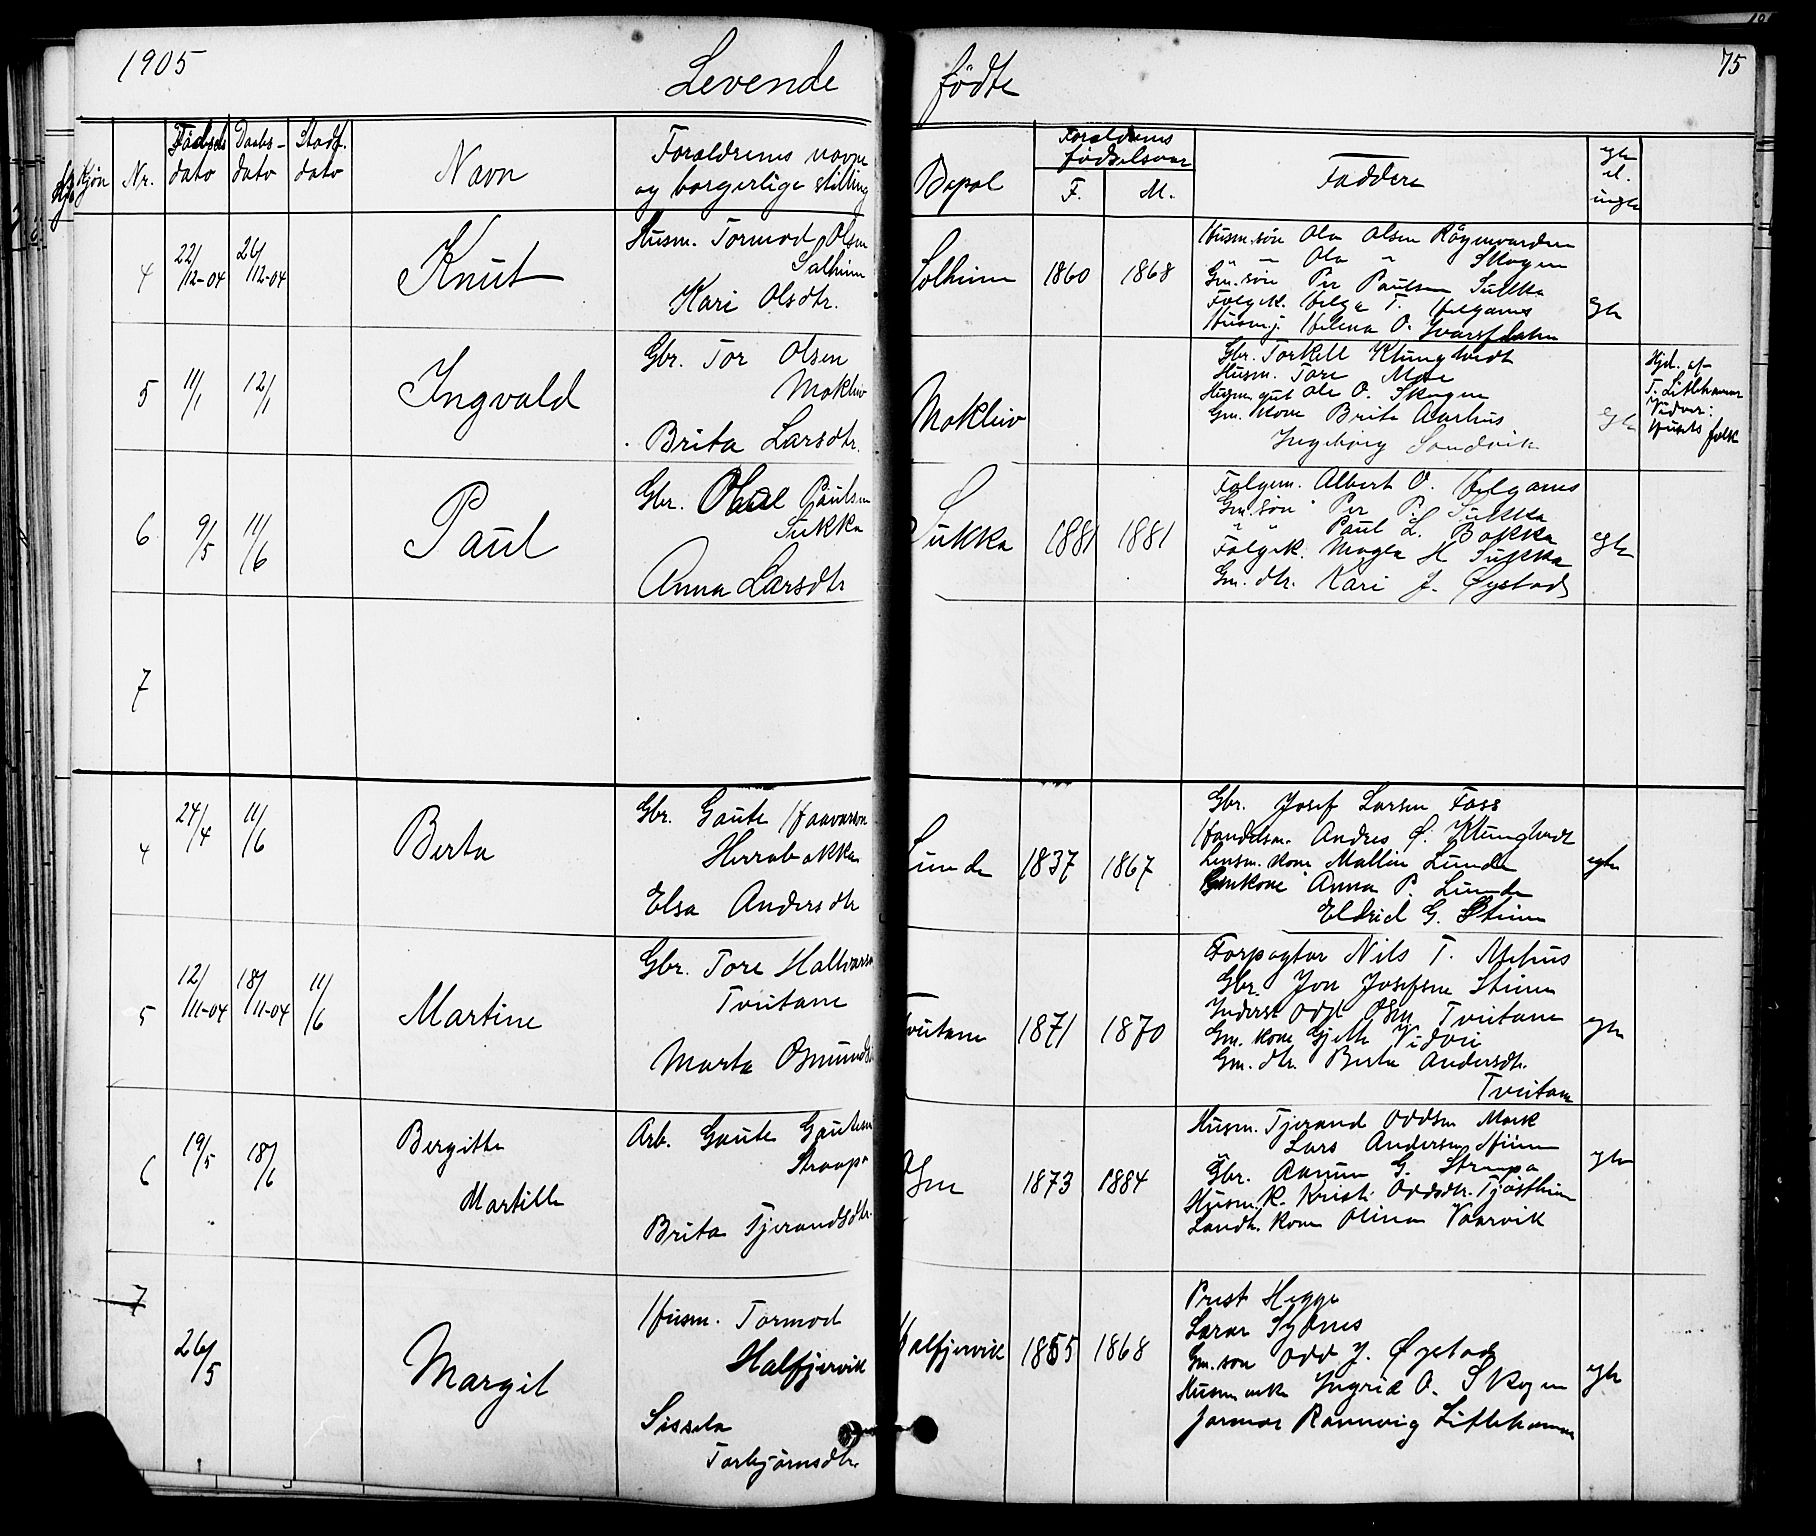 1905 Levende fødte 75
Kjøn Nr. Fødsels dato Daabs- dato Stadf. dato Navn Forældrenes navne og borgerlige stilling Bopæl Forældrenes fødselsaar F. M. Faddere egte el. uegte
4 22/12-04 26/12-04 Knut
Husm. Tormod Olsen
Solheim
Kari Olsdtr.
Solheim 1860 1868
Husm. søn Ola Olsen
" - Ola " Skogen
Gm. søn Per Paulsen Sukka
Folgek. Helga T. Helganes
Helena O.
egte
5 11/1 12/1 Ingvald
Gbr. Tor Olsen
Mokleiv
Brita Larsdtr.
Mokleiv
Gbr. Torkell Klungtvedt
Husm. Tore Moe
Husm. gut Ole O. Skogen
Gm. kone Brita Aarhus
Ingeborg Sandvik
egte
Hjd. af
T. Litlehamar
Vidner:
Husets folk
6 9/5 11/6 Paul
Gbr. Olai Paulsen
Sukka
Anna Larsdtr
Sukka 1881 1881
Folgem. Albert O. Helganes
Gm. søn Per P. Sukka
" " Paul L. Bakka
Folgek. Magla H Sukka
Gm. dtr. Kari J. Øystad
egte
7
4 24/4 11/6 Berta
Gbr. Gaute Haavarson
Herrabakka
Elsa Andersdtr
Lunde 1837 1867
Gbr. Josef Larsen Foss
Handelsm. Andres Ø. Klungtvedt
Lensm. kone Mallin Lunde
Gmkone Anna P. Lunde
Eldrid G. Stuen
egte
5 12/11-04 18/11-04 11/6 Martine
Gbr. Tore Hallvarson
Tveitane
Marta Osmunds
Tveitane 1871 1870
Forpagter Nils T. Mehus
Gbr. Jon Josefsen Stuen
Inderst Odd Osm. Tveitane
Gm. kone Gjette Vidvei
Gm. dtr. Berta Andersdtr.
Tveitane
egte
6 19/5 18/6 Bergitte
Martille
Arb. Gaute Gautesen
Straapa
Brita Tjerandsdtr.
1873 1884
Husm. Tjerand Oddsen Mark
" Lars Andersen
Gbr. Aamun G. Straapa
Husm. k. Kristi Oddsdtr. Tjøstheim
Landh. kone Olina Vaarvik
egte
7 26/5 Margit
Husm. Tormod
Halfjervik
Sissela
Torbjørnsdtr.
Halfjervik 1855 1868
Prest Hegge
Lærer Sydnes
Gm. søn Odd J. Øystad
Husm. enke Ingrid O. Skogen
Jormor Rannveig Litlehamar
egte